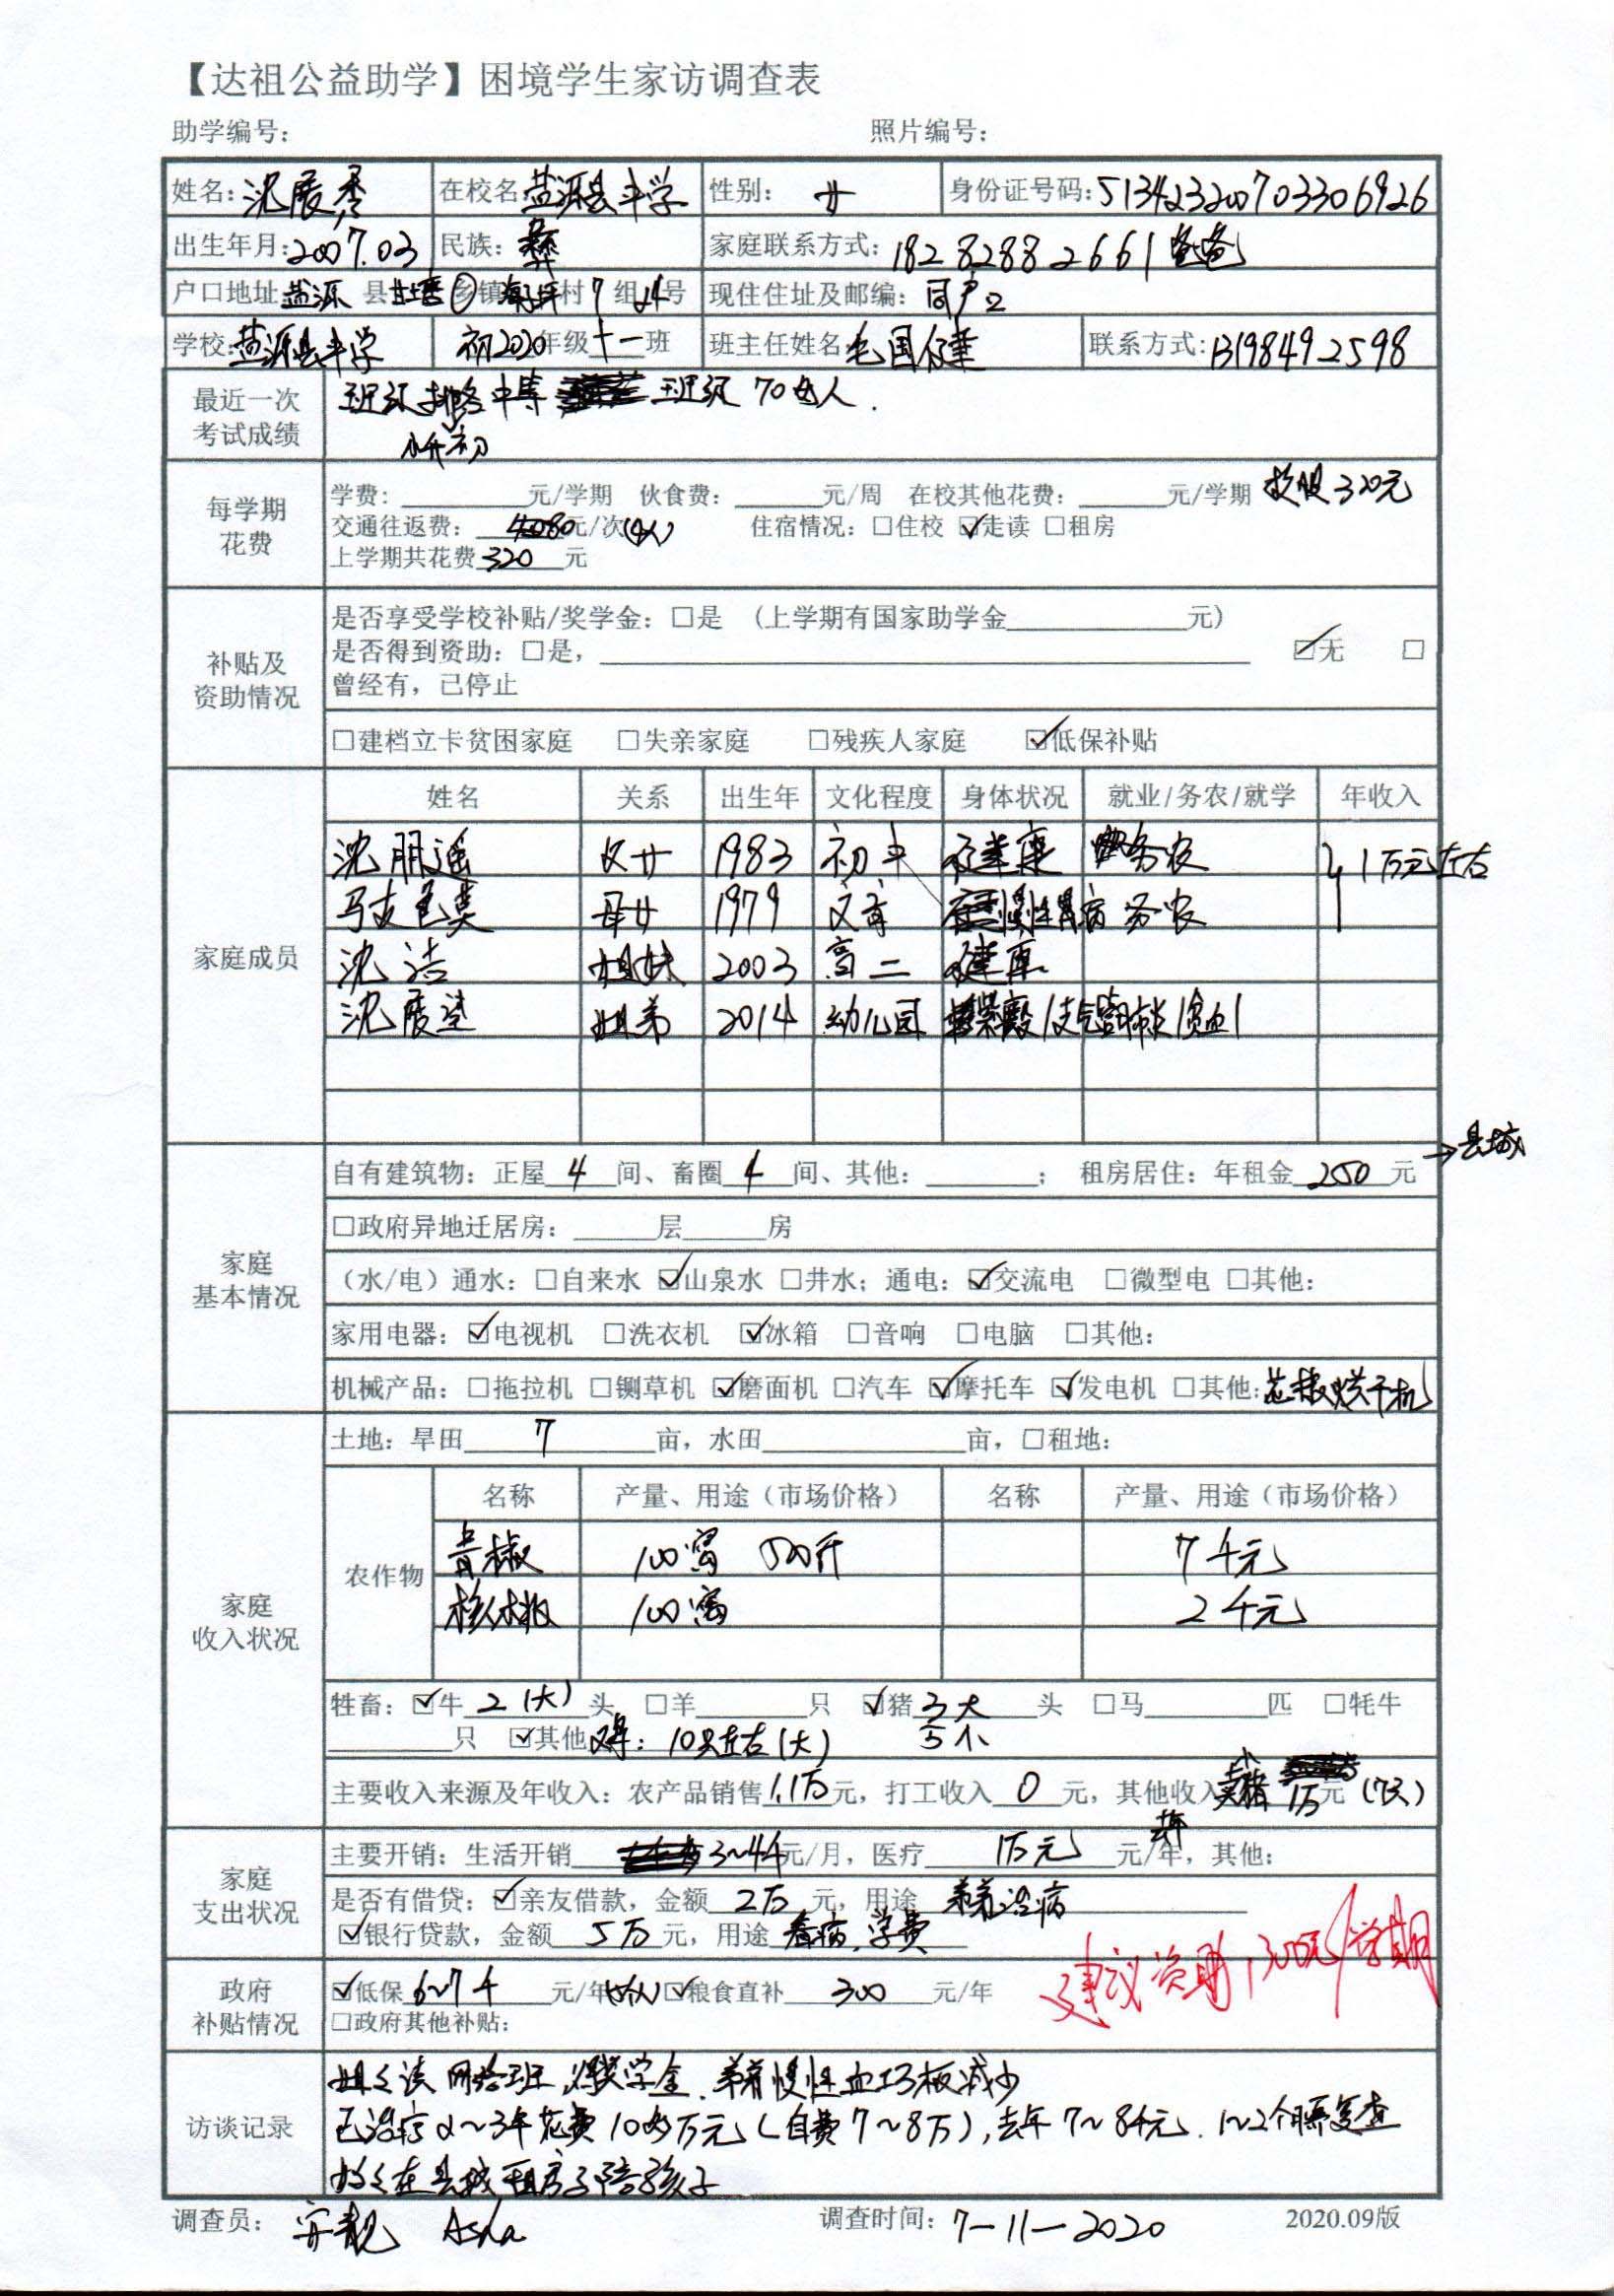 【达祖公益助学】困境学生家访调查表
助学编号: 照片编号:
姓名: 沈展 在校名 盐源县中学 性别: 女 身份证号码: 513423200703306926
出生年月: 2007.03 民族: 彝 家庭联系方式: 18282882661 爸爸
户口地址 盐源 县 甘塘 乡镇 海子坪 村 7 组 24 号 现住住址及邮编: 同户口
学校: 盐源县中学 初2020 年级 十一 班 班主任姓名 毛国健 联系方式: 13198492598
最近一次
考试成绩
班级排名中等 班级 70多人.
小升初
每学期
花费
学费: 元/学期 伙食费: 元/周 在校其他花费: 元/学期 校服320元
交通往返费: 80 元/次 住宿情况: □住校 ☑走读 □租房
上学期共花费 320 元
补贴及
资助情况
是否享受学校补贴/奖学金: □是 (上学期有国家助学金 元)
是否得到资助: □是, ☑无 □
曾经有, 已停止
□建档立卡贫困家庭 □失亲家庭 □残疾人家庭 ☑低保补贴
家庭成员
姓名 关系 出生年 文化程度 身体状况 就业/务农/就学 年收入
沈朋遥 父女 1983 初中 健康 务农 1万元左右
马支色莫 母女 1979 文盲 慢性胃病 务农
沈洁 姐妹 2003 高二 健康
沈展 姐弟 2014 幼儿园 紫癜/支气管肺炎/贫血/
家庭
基本情况
自有建筑物: 正屋 4 间、畜圈 4 间、其他: ; 租房居住: 年租金 250 元 →县城
□政府异地迁居房: 层 房
(水/电) 通水: □自来水 ☑山泉水 □井水; 通电: ☑交流电 □微型电 □其他:
家用电器: ☑电视机 □洗衣机 ☑冰箱 □音响 □电脑 □其他:
机械产品: □拖拉机 □铡草机 ☑磨面机 □汽车 ☑摩托车 ☑发电机 □其他: 花椒烘干机
家庭
收入状况
土地: 旱田 7 亩, 水田 亩, □租地:
农作物
名称 产量、用途 (市场价格) 名称 产量、用途 (市场价格)
青椒 100窝 500斤 7千元
核桃 100窝 2千元
牲畜: ☑牛 2(大) 头 □羊 只 ☑猪 3大 头 □马 匹 □牦牛
5小
只 ☑其他 鸡: 10只左右(大)
主要收入来源及年收入: 农产品销售 1.1万 元, 打工收入 0 元, 其他收入 卖小猪 1万 元 (7只)
家庭
支出状况
主要开销: 生活开销 3~4千 元/月, 医疗 1万元 元/年, 其他: 去年
是否有借贷: ☑亲友借款, 金额 2万 元, 用途 弟弟治病
☑银行贷款, 金额 5万 元, 用途 看病、学费
建议资助1300元/学期
政府
补贴情况
☑低保 6~7千 元/年 ☑粮食直补 300 元/年
□政府其他补贴:
访谈记录
姐姐读网络班, 奖学金. 弟弟慢性血小板减少
已治疗2~3年花费10多万元(自费7~8万), 去年7~8千元. 1~2个月复查
妈妈在县城租房子陪孩子
调查员: 安靓 Asha 调查时间: 7-11-2020 2020.09版